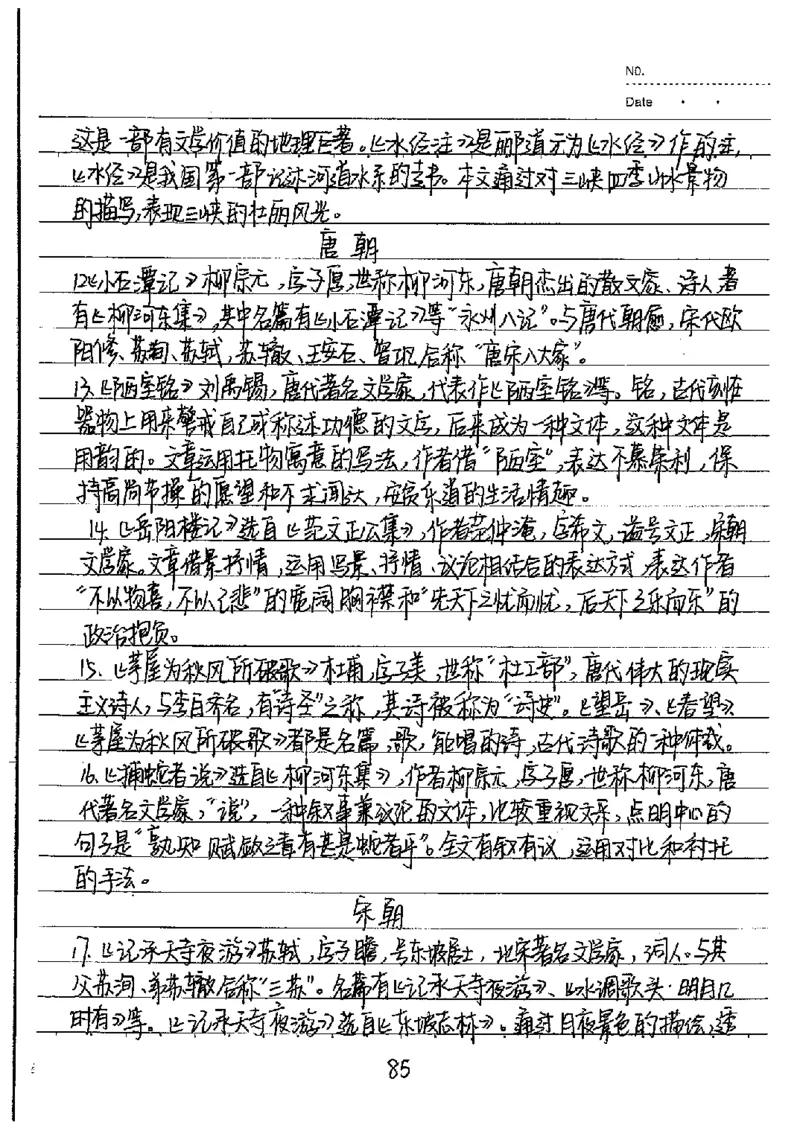 NO.
Date
这是一部有文学价值的地理巨著。《水经注》是郦道元为《水经》作的注,
《水经》是我国第一部记述河道水系的专书。本文通过对三峡四季山水景物
的描写,表现三峡的壮丽风光。
唐朝
12《小石潭记》柳宗元,字子厚,世称柳河东,唐朝杰出的散文家、诗人,著
有《柳河东集》,其中名篇有《小石潭记》等“永州八记”。与唐代韩愈,宋代欧
阳修、苏洵、苏轼,苏辙、王安石、曾巩合称“唐宋八大家”。
13、《陋室铭》刘禹锡,唐代著名文学家,代表作《陋室铭》等。铭,古代刻在
器物上用来警戒自己或称述功德的文字,后来成为一种文体,这种文体是
用韵的。文章运用托物寓意的写法,作者借“陋室”,表达不慕荣利,保
持高尚节操的愿望和不求闻达,安贫乐道的生活情趣。
14、《岳阳楼记》选自《范文正公集》,作者范仲淹,字希文,谥号文正,宋朝
文学家。文章借景抒情,运用写景、抒情、议论相结合的表达方式,表达作者
“不以物喜,不以己悲”的宽阔胸襟和“先天下之忧而忧,后天下之乐而乐”的
政治抱负。
15、《茅屋为秋风所破歌》杜甫,字子美,世称“杜工部”,唐代伟大的现实
主义诗人,与李白齐名,有“诗圣”之称,其诗被称为“诗史”。《望岳》、《春望》、
《茅屋为秋风所破歌》都是名篇,歌,能唱的诗,古代诗歌的一种体裁。
16、《捕蛇者说》选自《柳河东集》,作者柳宗元,字子厚,世称柳河东,唐
代著名文学家,“说”,一种叙事兼议论的文体,比较重视文采,点明中心的
句子是“孰知赋敛之毒有甚是蛇者乎”。全文有叙有议,运用对比和衬托
的手法。
宋朝
17、《记承天寺夜游》苏轼,字子瞻,号东坡居士,北宋著名文学家,词人。与其
父苏洵、弟苏辙合称“三苏”。名篇有《记承天寺夜游》、《水调歌头·明月几
时有》等。《记承天寺夜游》选自《东坡志林》。通过月夜景色的描绘,透
85